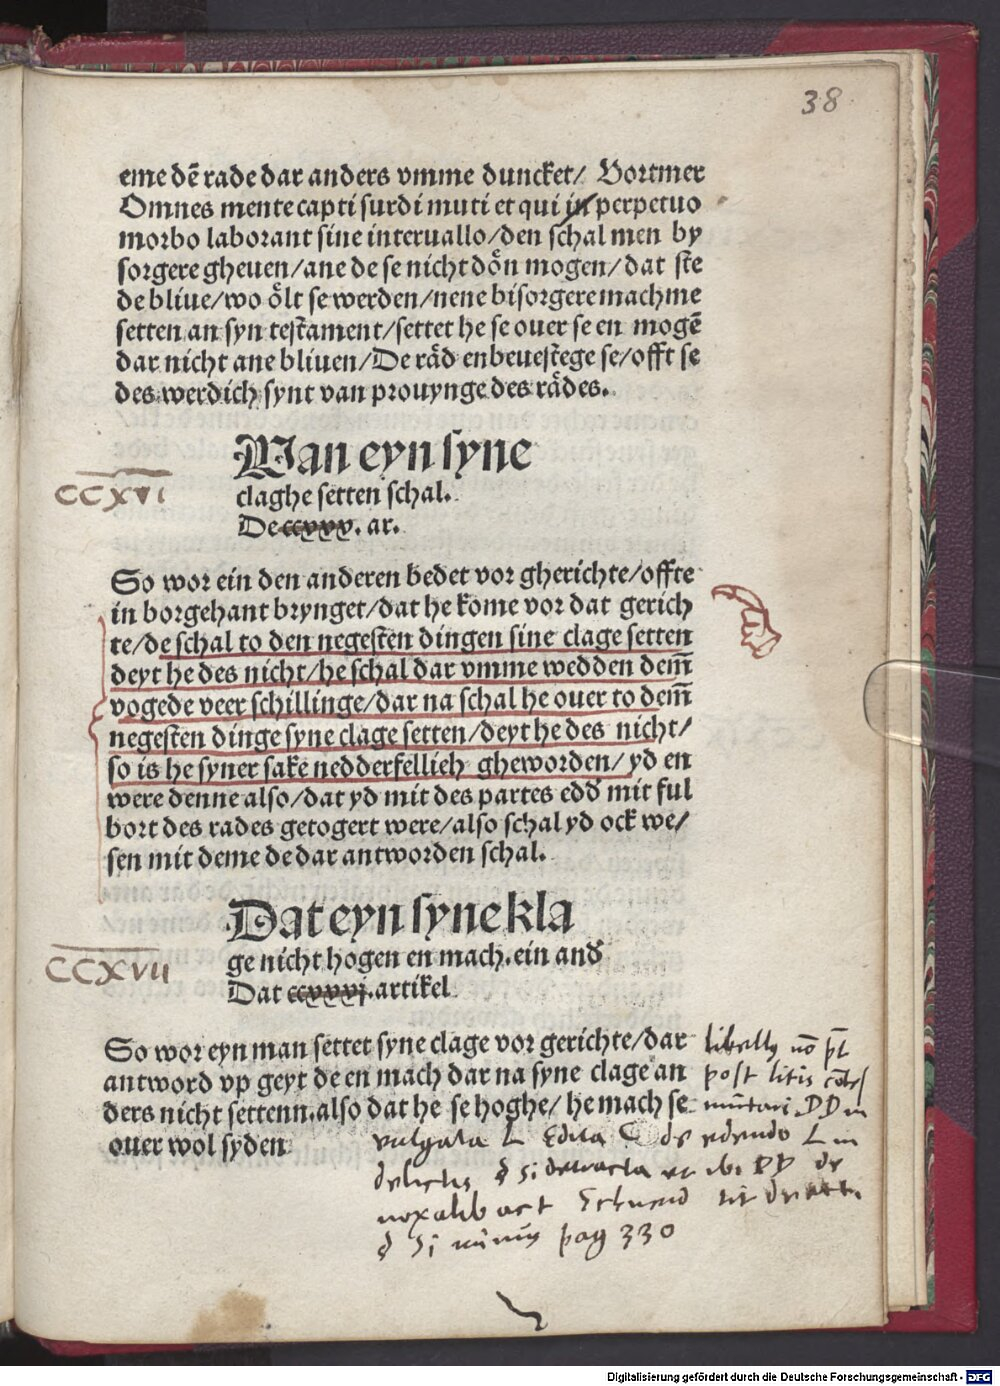 38
eme dē rade dar anders vmme duncket/ Vortmer
Omnes mente capti surdi muti et qui in perpetuo
morbo laborant sine interuallo/den schal men by
sorgere gheuen/ane de se nicht dön mogen/dat ste
de bliue/wo ölt se werden/nene bisorgere mach me
setten an syn testament/settet he se ouer se en mogē
dar nicht ane bliuen/De räd enbeuestege se/offt se
des werdich synt van prouynge des rädes.
Wan eyn syne
CCXVI
claghe setten schal.
De ccxxx. ar.
So wor ein den anderen bedet vor gherichte/offte
in borgehant brynget/dat he kome vor dat gerich
te/de schal to den negesten dingen sine clage setten
deyt he des nicht/he schal dar vmme wedden dem̄
vogede veer schillinge/dar na schal he ouer to dem̄
negesten dinge syne clage setten/deyt he des nicht/
so is he syner sake nedderfellich gheworden/yd en
were denne also/dat yd mit des partes edd' mit ful
bort des rades getogert were/also schal yd ock we/
sen mit deme de dar antworden schal.
Dat eyn syne kla
CCXVII
ge nicht hogen en mach.ein and'
Dat ccxxxj.artikel
So wor eyn man settet syne clage vor gerichte/dar
antword vp geyt de en mach dar na syne clage an
ders nicht settenn.also dat he se hoghe/he mach se
ouer wol syden
post litis
mutari DD in
vulgata L Edita C de edendo L in
delictis § Si detracta ibi DD de
noxalib act
§ Si minus pag 330
Digitalisierung gefördert durch die Deutsche Forschungsgemeinschaft - DFG